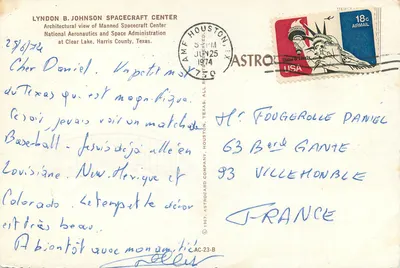 LYNDON B. JOHNSON SPACECRAFT CENTER
Architectural view of Manned Spacecraft Center
National Aeronautics and Space Administration
at Clear Lake, Harris County, Texas.
25/6/74
Cher Daniel. Un petit mot
du Texas qui est magnifique.
Ce soir je vais voir un match de
Baseball. Je suis déjà allé en
Louisiane. New. Mexique et
Colorado. Le temps et le décor
est très beau.
A bientôt avec mon amitié
AMF HOUSTON, TX
PM
JUN 25
1974
ASTRO
18c
AIRMAIL
USA
Mr FOUGEROLLE DANIEL
63 Bard GANTE
93 VILLEMOMBLE
FRANCE
AC-23-B